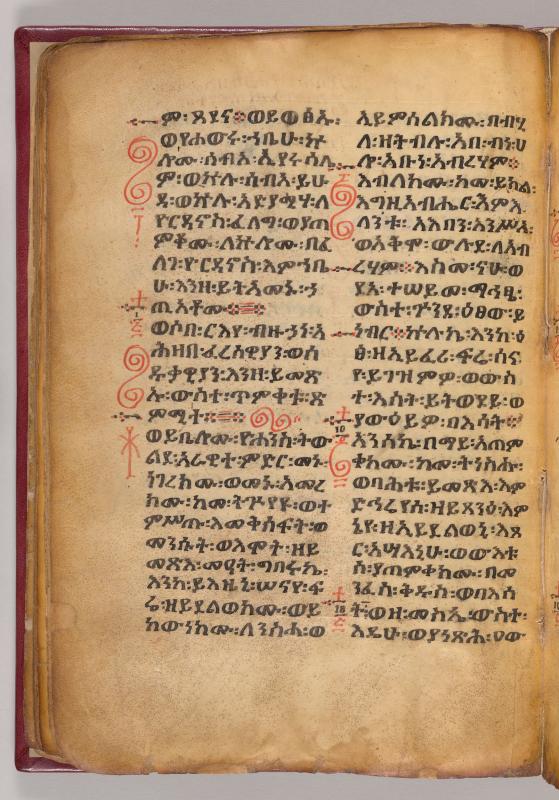 ም፡ ጸደና፨ወይወፅኡ፡
ወየሐውሩ፡ኀቤሁ፡ኵ
ሎሙ፡ሰብአ፡ኢየሩሳሌ
ም፡ወኵሉ፡ሰብአ፡ይሁ
ዳ፡ወኵሉ፡አድያሚሃ፡ለ
ዮርዳኖስ፡ፈለግ፡ወያጠ
ምቆሙ፡ለኵሎሙ፡በፈ
ለገ፡ዮርዳኖስ፡እምኀቤ
ሁ፡እንዘ፡ይትአመኑ፡ኀ
ጢአቶሙ፨
ወሶበ፡ርእየ፡ብዙኃነ፡አ
ሕዛበ፡ፈሪሳዊያን፡ወሰ
ዱቃዊያን፡እንዘ፡ይመጽ
ኡ፡ውስተ፡ጥምቀቱ፡ጽ
ምሚተ፨
ወይቤሎሙ፡ዮሐንስ፡ትው
ልደ፡አራዊተ፡ምድር፡መኑ፡
ነገረክሙ፡ወመኑ፡አመረ
ክሙ፡ከመ፡ትጕየዩ፡ወተ
ምሥጡ፡እመቅሰፍት፡ወ
መንሱት፡ወእሞት፡ዘይ
መጽእ፡መዐት፡ግበሩኬ፡
እንከ፡ይእዜኒ፡ሠናየ፡ፍ
ሬ፡ዘይደልወክሙ፡ወይ
ከውነክሙ፡ለንስሓ፡ወ
ኢይምሰልክሙ፡በብሂ
ለ፡ዘትብሉ፡አበ፡ብነ፡ሀ
ሎ፡አቡነ፡አብረሃም፨
እብለክሙ፡ከመ፡ይክል፡
እግዚአብሔር፡እምእ
ላንቱ፡ አእባን፡አንሥኦ፡
ወአቅሞ፡ውሉደ፡ለአብ
ረሃም፨እስመ፡ናሁ፡ወ
ድአ፡ተሠይመ፡ማኅፄ፡
ውስተ፡ጕንደ፡ዕፀው፡ይ
ነብር፨ኵሉ፡ኬ፡እንከ፡ዕ
ፀ፡ዘኢይፈሪ፡ፍሬ፡ሰና
የ፡ይገዝምዎ፡ወውስ
ተ፡እሳት፡ይትወደይ፡ወ
ያውዕይዎ፡በእሳት፨
አንሰኬ፡በማይ፡አጠም
ቀክሙ፡ከመ፡ትነስሑ፡
ወባሕቱ፡ይመጽእ፡እም
ድኅሬየሰ፡ዘይጸንዕ፡እም
ኔየ፡ዘኢይደልወኒ፡እጻ
ር፡አሣእኒሁ፡ወውእቱ
ሰ፡ያጠምቀክሙ፡በመ
ንፈስ፡ቅዱስ፡ወበእሳ
ት፡ወዘ፡መስኤ፡ውስተ፡
እዴሁ፡ወያነጽሕ፡ዐው